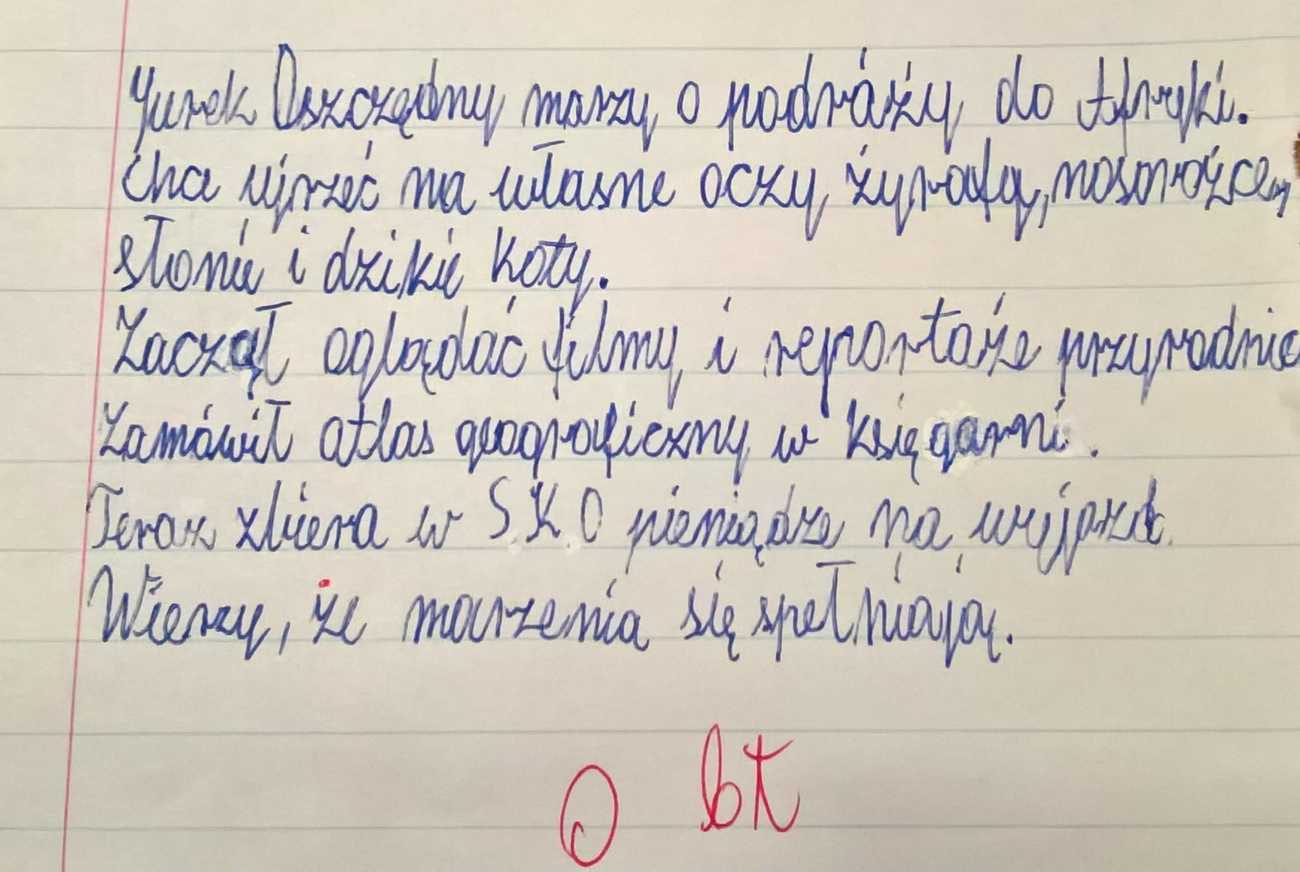 Jurek Oszczędny marzy o podróży do Afryki.
Chce ujrzeć na własne oczy żyrafy, nosorożce,
słonie i dzikie koty.
Zaczął oglądać filmy i reportaże przyrodnic
Zamówił atlas geograficzny w księgarni.
Teraz zbiera w S.K.O pieniądze na wyjazd.
Wierzy, że marzenia się spełniają.
0 bł